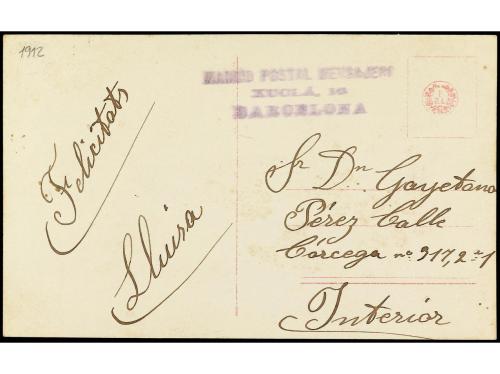 1912
Felicitats
Lluisa
POSTAL MENSAJERO
XUCLÁ, 16
BARCELONA
Sr Dn. Gayetano
Pérez Calle
Córcega nº 317, 2º 1ª
Interior